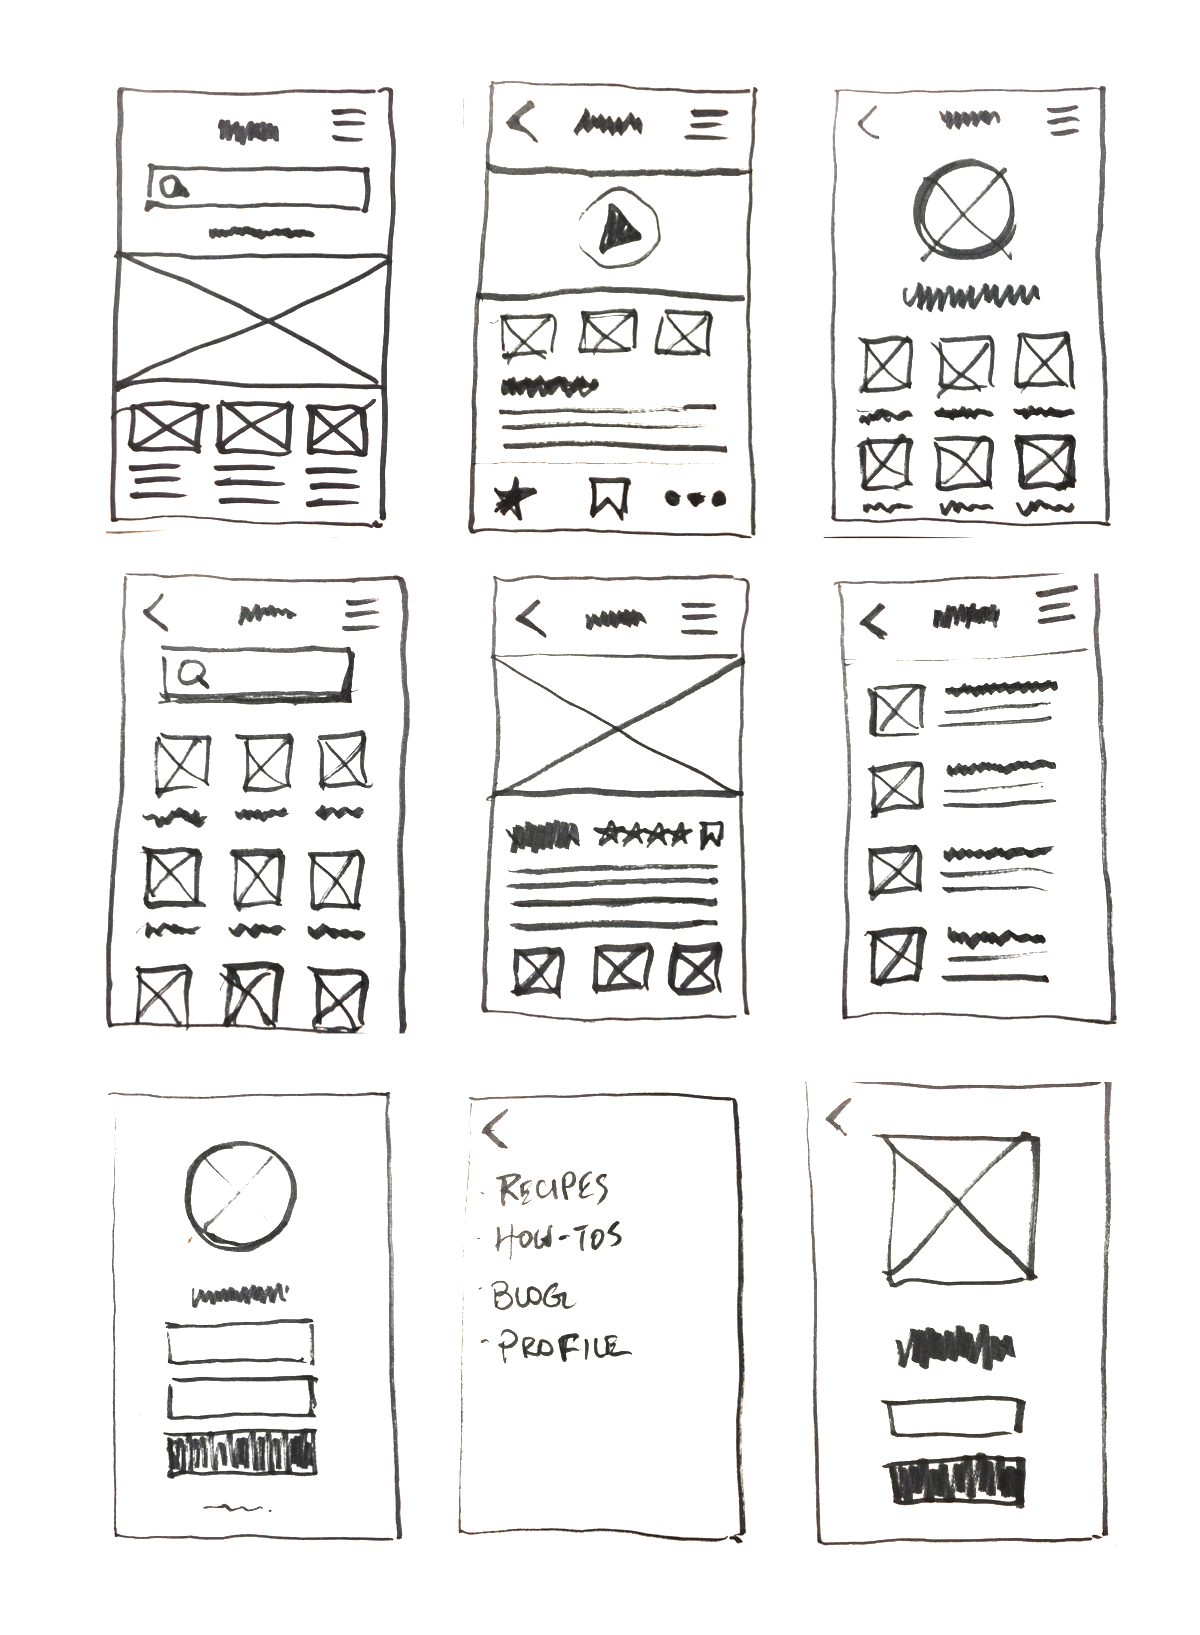 RECIPES
HOW-TOS
BLOG
PROFILE